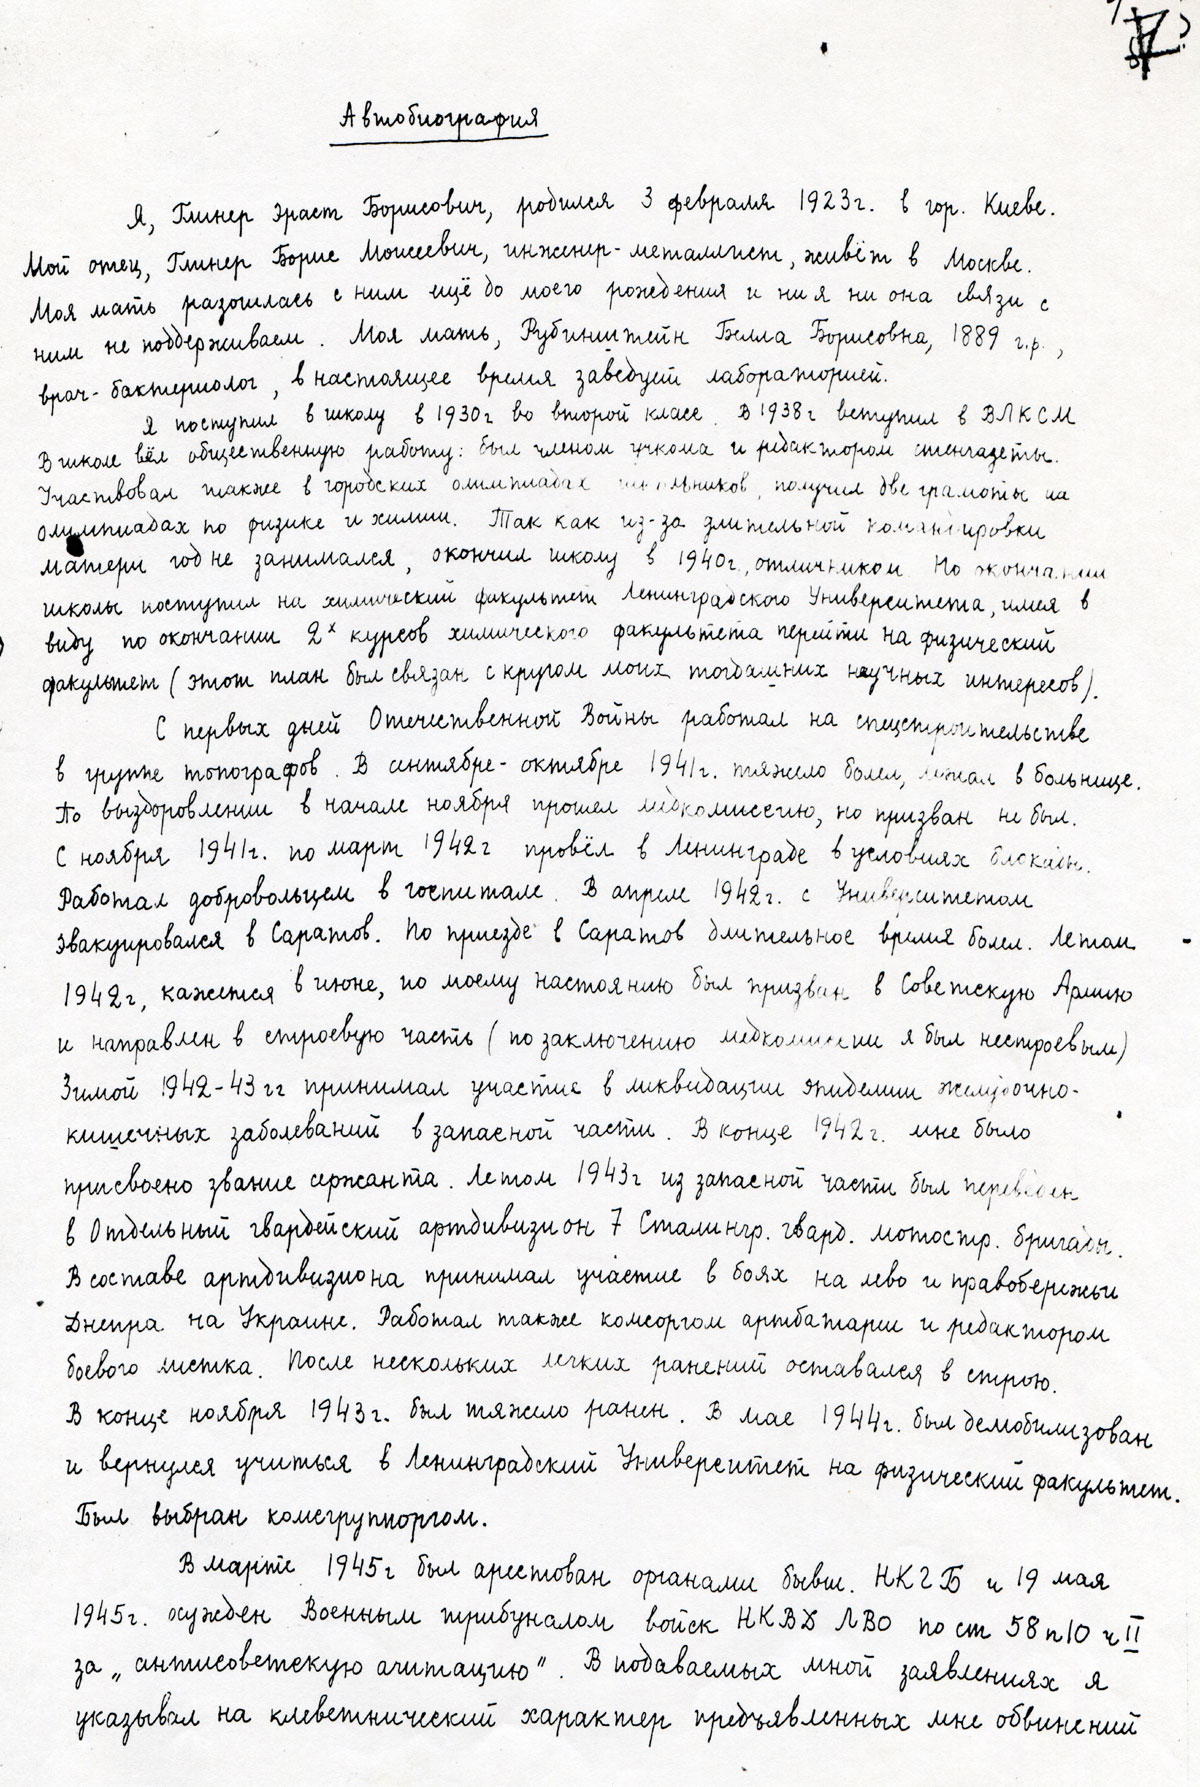 Автобиография
Я, Глинер Эраст Борисович, родился 3 февраля 1923г. в гор. Киеве.
Мой отец, Глинер Борис Моисеевич, инженер-металлист, живёт в Москве.
Моя мать разошлась с ним ещё до моего рождения и ни я ни она связи с
ним не поддерживаем. Моя мать, Рубинштейн Белла Борисовна, 1889 г.р.,
врач-бактериолог, в настоящее время заведует лабораторией.
Я поступил в школу в 1930г во второй класс. В 1938г вступил в ВЛКСМ
В школе вёл общественную работу: был членом учкома и редактором стенгазеты.
Участвовал также в городских олимпиадах школьников, получил две грамоты на
олимпиадах по физике и химии. Так как из-за длительной командировки
матери год не занимался, окончил школу в 1940г., отличником. По окончании
школы поступил на химический факультет Ленинградского Университета, имея в
виду по окончании 2х курсов химического факультета перейти на физический
факультет (этот план был связан с кругом моих тогдашних научных интересов).
С первых дней Отечественной Войны работал на спецстроительстве
в группе топографов. В сентябре-октябре 1941г. тяжело болел, лежал в больнице.
По выздоровлении в начале ноября прошел медкомиссию, но призван не был.
С ноября 1941г. по март 1942г провёл в Ленинграде в условиях блокады.
Работал добровольцем в госпитале. В апреле 1942г. с Университетом
эвакуировался в Саратов. По приезде в Саратов длительное время болел. Летом
1942г, кажется в июне, по моему настоянию был призван в Советскую Армию
и направлен в строевую часть (по заключению медкомиссии я был нестроевым)
Зимой 1942-43гг принимал участие в ликвидации эпидемии желудочно-
кишечных заболеваний в запасной части. В конце 1942г. мне было
присвоено звание сержанта. Летом 1943г из запасной части был переведен
в Отдельный гвардейский артдивизион 7 Сталингр. гвард. мотостр. бригады.
В составе артдивизиона принимал участие в боях на лево и правобережьи
Днепра на Украине. Работал также комсоргом артбатареи и редактором
боевого листка. После нескольких легких ранений оставался в строю.
В конце ноября 1943г. был тяжело ранен. В мае 1944г. был демобилизован
и вернулся учиться в Ленинградский Университет на физический факультет.
Был выбран комсгруппоргом.
В марте 1945г был арестован органами бывш. НКГБ и 19 мая
1945г. осужден Военным трибуналом войск НКВД ЛВО по ст 58 п10 ч II
за „антисоветскую агитацию". В подаваемых мной заявлениях я
указывал на клеветнический характер предъявленных мне обвинений